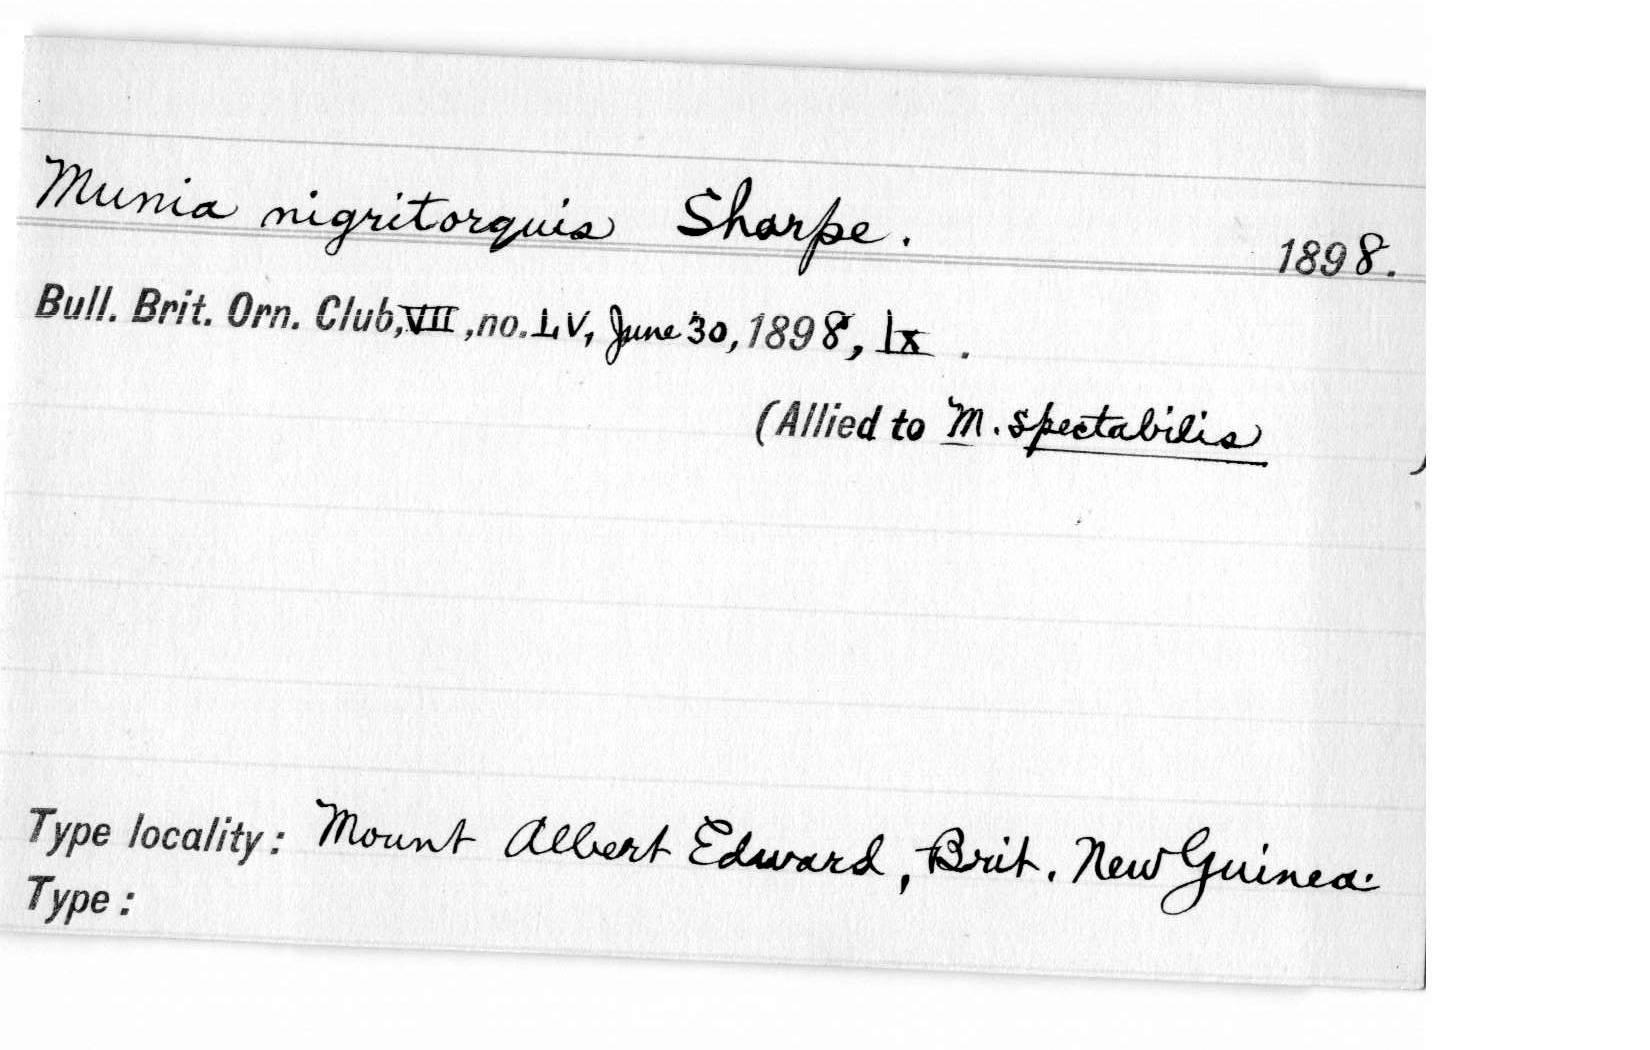 Munia nigritorquis Sharpe. 1898.
Bull. Brit. Orn. Club, VII, no. LV, June 30, 1898, lx.
(Allied to M. spectabilis )
Type locality: Mount Albert Edward, Brit. New Guinea.
Type: